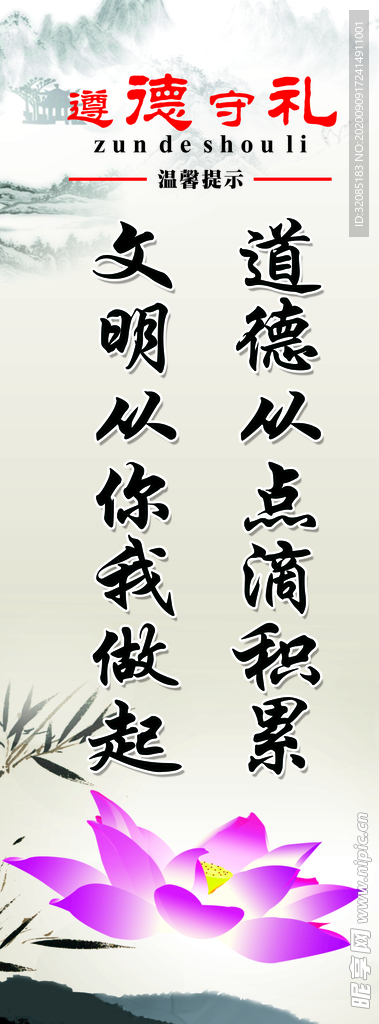 遵德守礼
zun de shou li
温馨提示
道德从点滴积累
文明从你我做起
ID:32085183 NO:20200909172414911001
昵享网 www.nipic.cn